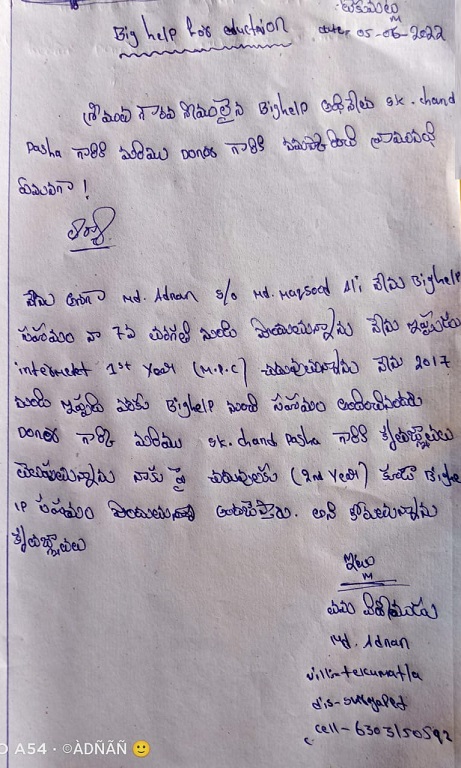 టేకుమట్ల
Big help for eduction date 05-06-2022
శ్రీమతి గౌరవ శ్రీమంతులైన Bighelp అధినేత sk. chand
Pasha గారికి మరియు Donor గారికి నమస్కరించి వ్రాయునది
ఏమనగా !
నేను అనగా Md. Adnan s/o Md. Maqsood Ali నేను Bighelp
సహాయం నా 7వ తరగతి నుండి పొందుచున్నాను నేను ఇప్పుడు
intermeket 1st Year (M.P.C) చదువుచున్నాను నేను 2017
నుండి ఇప్పటి వరకు Bighelp నుంచి సహాయం అందించినందుకు
Donor గార్కి మరియు sk. chand Pasha గారికి కృతజ్ఞతలు
తెలుపుచున్నాను నాకు పై చదువులకు (2nd Year) కూడా Bighe
lp సహాయం అందచేస్తారు. అని కోరుచున్నాను
కృతజ్ఞతలు
ఇట్లు
తమ విధేయుడు
Md. Adnan
vill:- tekumatla
dis- suryapet
cell- 6303150592
O A54 · ©ÀDÑÃÑ 🙂